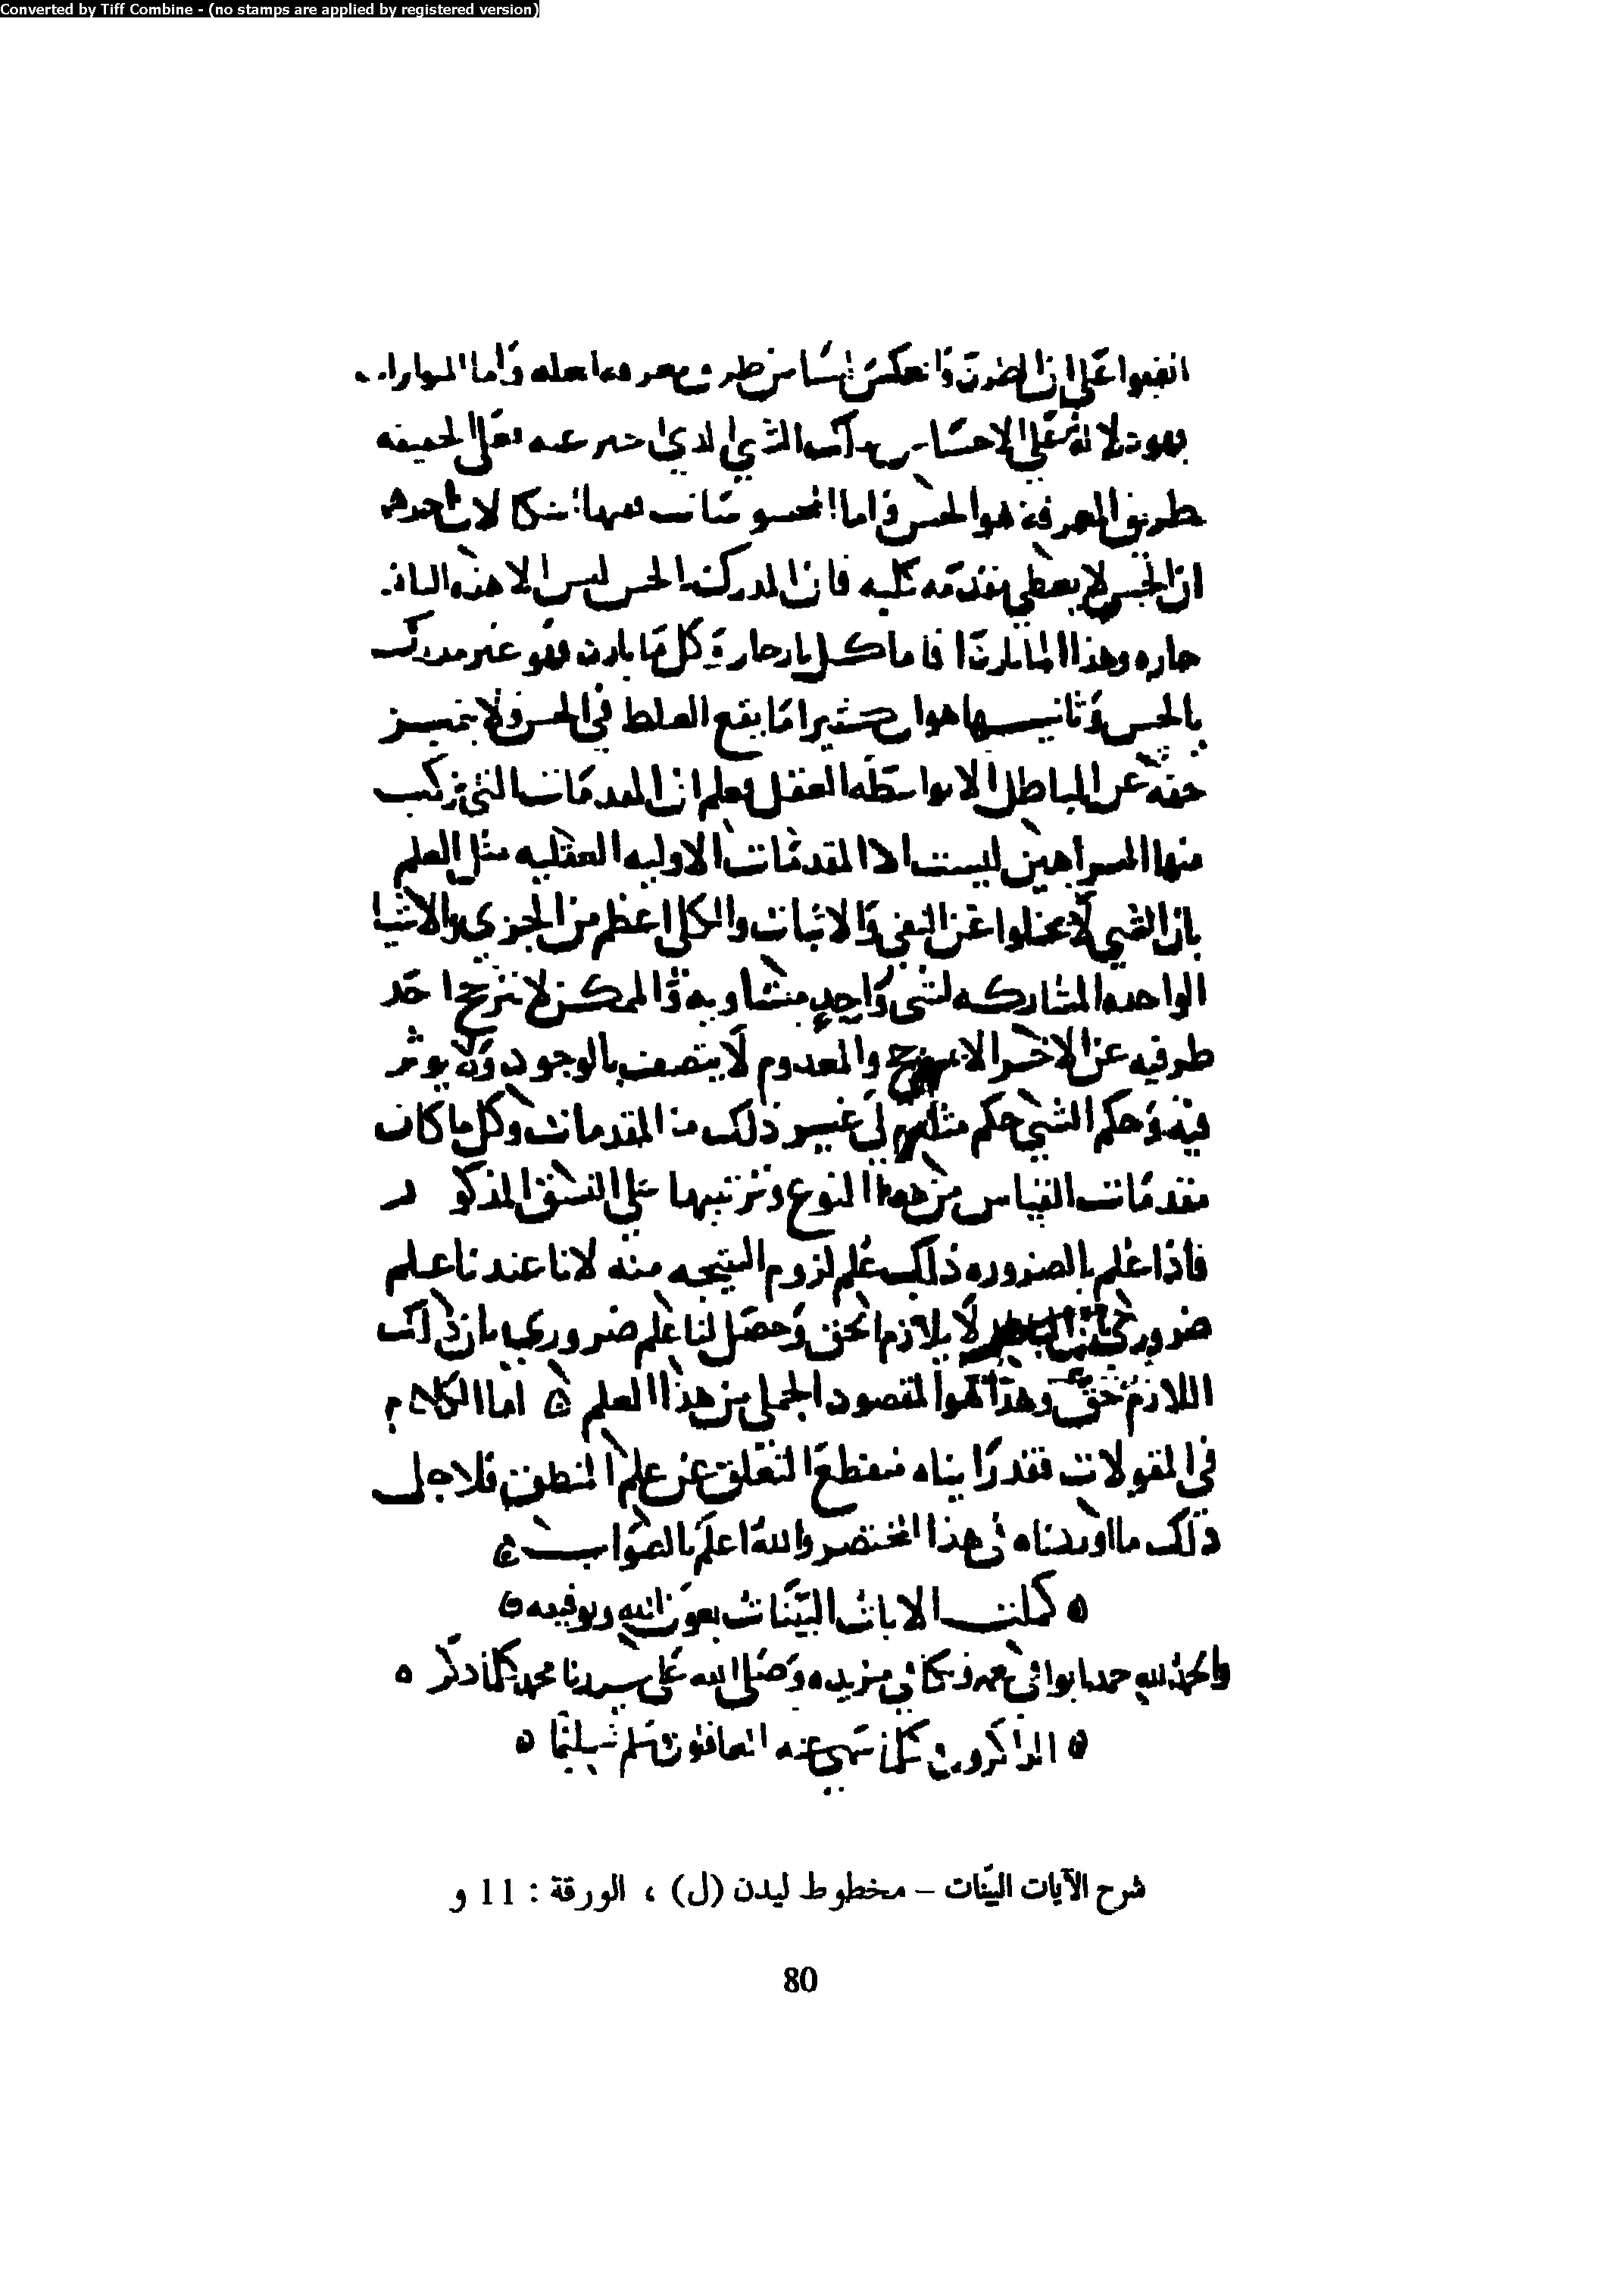 Converted by Tiff Combine - (no stamps are applied by registered version)
اتفقوا على ان الطرد والعكس ليسا من طرق معرفة العلة واما المتواترات
على الاحساس الشي الذي خبر عنه فعلى الحقيقه
طريق المعرفة هو الحس واما المحسوسات ففيها اشكالات احدها
ان الحس لا يعطي مقدمه كليه فان المدرك بالحس ليس الا هذه النار
حاره وهذا الما بارد اما كل نار حارة وكل ما بارد فهو غير مدرك
بالحس وثانيها هو ان كثيرا ما يقع الغلط في الحس ولا يتميز
حقه عن الباطل الا بواسطه العقل فعلم ان المقدمات التي تركب
منها البراهين ليست الا المقدمات الاوليه العقليه مثل العلم
بان الشي لا يخلوا عن النفي والاثبات والكل اعظم من الجزي والاشيا
الواحده المشاركه لشي واحد متساويه والممكن لا يترجح احد
طرفيه عن الاخر الا بمرجح والمعدوم لا يتصف بالوجود ولا يوثر
فيه وحكم الشي حكم مثله الى غير ذلك من المقدمات وكل ما كان
مقدمات القياس من هذا النوع وترتيبها على النسق المذكور
فاذا علم بالضروره ذلك علم لزوم النتيجه منه لانا عندنا علم
ضروري بان الباطل لا يلازم الحق وحصل لنا علم ضروري بان ذلك
اللازم حق وهذا هو المقصود الجملي من هذا العلم ۞ اما الكلام
في المقولات فقد راىناه منقطع التعلق عن علم المنطق فلاجل
ذلك ما اوردناه في هذا المختصر والله اعلم بالصواب ۞
۞ كملت الايات البينات بعون الله وتوفيقه ۞
والحمد لله حمدا يوافي نعمه ويكافي مزيده وصلى الله على سيدنا محمد كلما ذكره
۞ الذاكرون وكلما سهي عنه الغافلون وسلم تسليما ۞
شرح الآيات البيّنات – مخطوط ليدن (ل) ، الورقة : 11 و
80